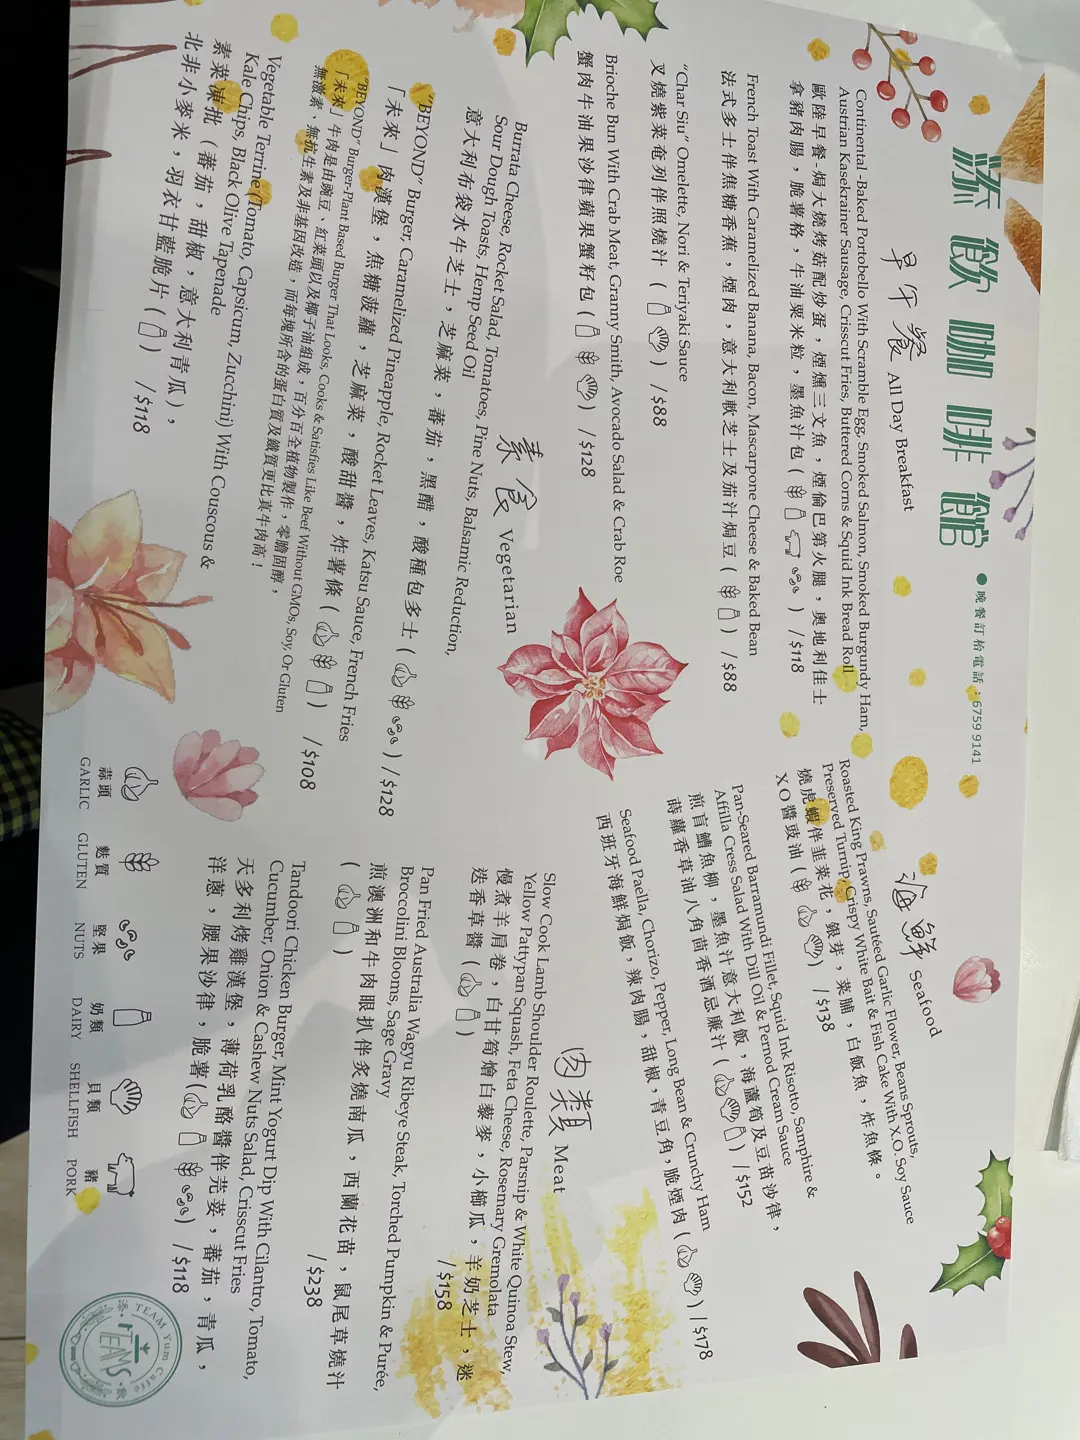 添飲咖啡館
●晚餐訂枱電話：6759 9141
早午餐 All Day Breakfast
Continental -Baked Portobello With Scramble Egg, Smoked Salmon, Smoked Burgundy Ham,
Austrian Kasekrainer Sausage, Crisscut Fries, Buttered Corns & Squid Ink Bread Roll
歐陸早餐-焗大燒烤菇配炒蛋，煙燻三文魚，煙倫巴第火腿，奧地利佳士
拿豬肉腸，脆薯格，牛油粟米粒，墨魚汁包 ( ) /$118
French Toast With Caramelized Banana, Bacon, Mascarpone Cheese & Baked Bean
法式多士伴焦糖香蕉，煙肉，意大利軟芝士及茄汁焗豆 ( ) /$88
"Char Siu" Omelette, Nori & Teriyaki Sauce
叉燒紫菜奄列伴照燒汁 ( ) /$88
Brioche Bun With Crab Meat, Granny Smith, Avocado Salad & Crab Roe
蟹肉牛油果沙律蘋果蟹籽包 ( ) /$128
素食 Vegetarian
Burrata Cheese, Rocket Salad, Tomatoes, Pine Nuts, Balsamic Reduction,
Sour Dough Toasts, Hemp Seed Oil
意大利布袋水牛芝士，芝麻菜，蕃茄，黑醋，酸種包多士 ( ) /$128
"BEYOND" Burger, Caramelized Pineapple, Rocket Leaves, Katsu Sauce, French Fries
「未來」肉漢堡，焦糖菠蘿，芝麻菜，酸甜醬，炸薯條 ( ) /$108
"BEYOND" Burger-Plant Based Burger That Looks, Cooks & Satisfies Like Beef Without GMOs, Soy, Or Gluten
「未來」牛肉是由豌豆、紅菜頭以及椰子油組成，百分百全植物製作，零膽固醇，
無激素、無抗生素及非基因改造，而每塊所含的蛋白質及鐵質更比真牛肉高！
Vegetable Terrine (Tomato, Capsicum, Zucchini) With Couscous &
Kale Chips, Black Olive Tapenade
素菜凍批（蕃茄，甜椒，意大利青瓜），
北非小麥米，羽衣甘藍脆片 ( ) /$118
海鮮 Seafood
Roasted King Prawns, Sautéed Garlic Flower, Beans Sprouts,
Preserved Turnip, Crispy White Bait & Fish Cake With X.O. Soy Sauce
燒虎蝦伴韭菜花，銀芽，菜脯，白飯魚，炸魚條。
XO醬豉油 ( ) /$138
Pan-Seared Barramundi Fillet, Squid Ink Risotto, Samphire &
Affilla Cress Salad With Dill Oil & Pernod Cream Sauce
煎盲鰽魚柳，墨魚汁意大利飯，海蘆筍及豆苗沙律，
蒔蘿香草油八角茴香酒忌廉汁 ( ) /$152
Seafood Paella, Chorizo, Pepper, Long Bean & Crunchy Ham
西班牙海鮮焗飯，辣肉腸，甜椒，青豆角，脆煙肉 ( ) /$178
肉類 Meat
Slow Cook Lamb Shoulder Roulette, Parsnip & White Quinoa Stew,
Yellow Pattypan Squash, Feta Cheese, Rosemary Gremolata
慢煮羊肩卷，白甘筍燴白藜麥，小櫛瓜，羊奶芝士，迷
迭香草醬 ( ) /$158
Pan Fried Australia Wagyu Ribeye Steak, Torched Pumpkin & Purée,
Broccolini Blooms, Sage Gravy
煎澳洲和牛肉眼扒伴炙燒南瓜，西蘭花苗，鼠尾草燒汁
( ) /$238
Tandoori Chicken Burger, Mint Yogurt Dip With Cilantro, Tomato,
Cucumber, Onion & Cashew Nuts Salad, Crisscut Fries
天多利烤雞漢堡，薄荷乳酪醬伴芫荽，蕃茄，青瓜，
洋蔥，腰果沙律，脆薯 ( ) /$118
蒜頭 麩質 堅果 奶類 貝類 豬
GARLIC GLUTEN NUTS DAIRY SHELLFISH PORK
TEAM Yum Caffé
TEAMS
添 飲